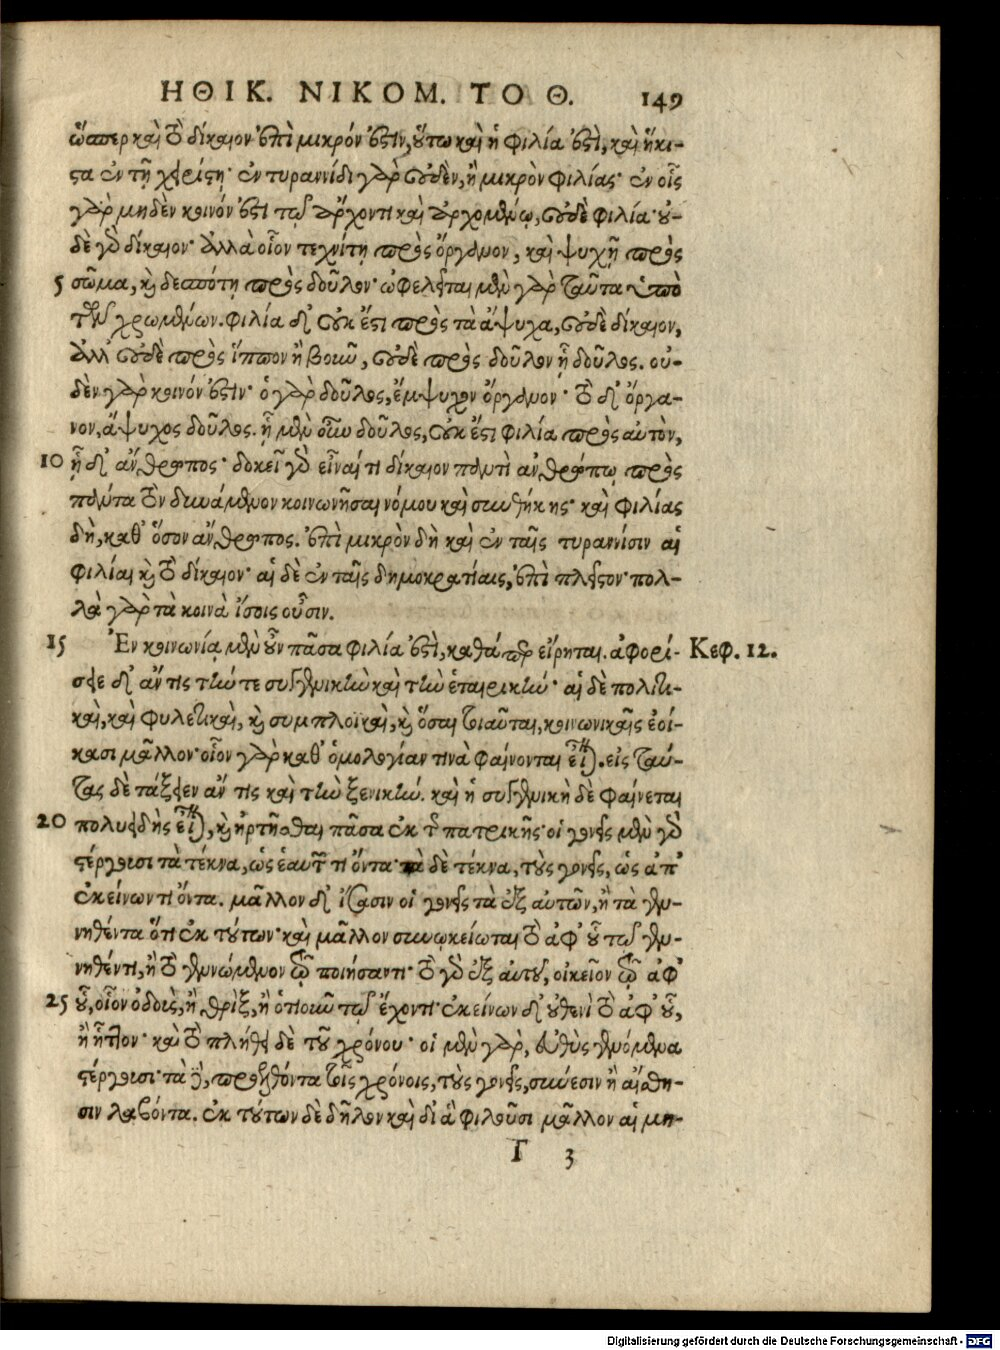 ΗΘΙΚ. ΝΙΚΟΜ. ΤΟ Θ. 149
ὥσπερ καὶ τὸ δίκαιον ἐπὶ μικρόν ἐστιν, οὕτω καὶ ἡ φιλία ἐστὶ, καὶ ἥκι-
στα ἐν τῇ χειρίστῃ· ἐν τυραννίδι γὰρ οὐδὲν, ἢ μικρὸν φιλίας· ἐν οἷς
γὰρ μηδὲν κοινόν ἐστι τῷ ἄρχοντι καὶ ἀρχομένῳ, οὐδὲ φιλία· οὐ-
δὲ γὰρ δίκαιον· ἀλλὰ οἷον τεχνίτῃ πρὸς ὄργανον, καὶ ψυχῇ πρὸς
5 σῶμα, καὶ δεσπότῃ πρὸς δοῦλον· ὠφελεῖται μὲν γὰρ ταῦτα ὑπὸ
τῶν χρωμένων. φιλία δ' οὐκ ἔστι πρὸς τὰ ἄψυχα, οὐδὲ δίκαιον,
ἀλλ' οὐδὲ πρὸς ἵππον ἢ βοῦν, οὐδὲ πρὸς δοῦλον ᾗ δοῦλος. οὐ-
δὲν γὰρ κοινόν ἐστιν· ὁ γὰρ δοῦλος, ἔμψυχον ὄργανον· τὸ δ' ὄργα-
νον, ἄψυχος δοῦλος. ᾗ μὲν οὖν δοῦλος, οὐκ ἔστι φιλία πρὸς αὐτὸν,
10 ᾗ δ' ἄνθρωπος· δοκεῖ γὰρ εἶναί τι δίκαιον παντὶ ἀνθρώπῳ πρὸς
πάντα τὸν δυνάμενον κοινωνῆσαι νόμου καὶ συνθήκης· καὶ φιλίας
δὴ, καθ' ὅσον ἄνθρωπος. ἐπὶ μικρὸν δὴ καὶ ἐν ταῖς τυραννίσιν αἱ
φιλίαι καὶ τὸ δίκαιον· αἱ δὲ ἐν ταῖς δημοκρατίαις, ἐπὶ πλεῖστον· πολ-
λὰ γὰρ τὰ κοινὰ ἴσοις οὖσιν.
15 Ἐν κοινωνίᾳ μὲν οὖν πᾶσα φιλία ἐστὶ, καθάπερ εἴρηται. ἀφορί- Κεφ. 12.
σειε δ' ἄν τις τήν τε συγγενικὴν καὶ τὴν ἑταιρικήν· αἱ δὲ πολιτι-
καὶ, καὶ φυλετικαὶ, καὶ συμπλοϊκαὶ, καὶ ὅσαι τοιαῦται, κοινωνικαῖς ἐοί-
κασι μᾶλλον· οἷον γὰρ καθ' ὁμολογίαν τινὰ φαίνονται εἶναι. εἰς ταύ-
τας δὲ τάξειεν ἄν τις καὶ τὴν ξενικήν. καὶ ἡ συγγενικὴ δὲ φαίνεται
20 πολυειδὴς εἶναι, καὶ ἠρτῆσθαι πᾶσα ἐκ τῆς πατρικῆς· οἱ γονεῖς μὲν γὰρ
στέργουσι τὰ τέκνα, ὡς ἑαυτῶν τι ὄντα· τὰ δὲ τέκνα, τοὺς γονεῖς, ὡς ἀπ'
ἐκείνων τι ὄντα. μᾶλλον δ' ἴσασιν οἱ γονεῖς τὰ ἐξ αὐτῶν, ἢ τὰ γεν-
νηθέντα ὅτι ἐκ τούτων· καὶ μᾶλλον συνῳκείωται τὸ ἀφ' οὗ τῷ γεν-
νηθέντι, ἢ τὸ γενώμενον τῷ ποιήσαντι· τὸ γὰρ ἐξ αὐτοῦ, οἰκεῖον τῷ ἀφ'
25 οὗ, οἷον ὀδοὺς, ἢ θρὶξ, ἢ ὁτιοῦν τῷ ἔχοντι· ἐκείνων δ' οὐθενὶ τὸ ἀφ' οὗ,
ἢ ἧττον· καὶ τὸ πλήθει δὲ τοῦ χρόνου· οἱ μὲν γὰρ, εὐθὺς γενόμενα
στέργουσι· τὰ δὲ, προελθόντα τοῖς χρόνοις, τοὺς γονεῖς, σύνεσιν ἢ αἴσθη-
σιν λαβόντα. ἐκ τούτων δὲ δῆλον καὶ δι' ἃ φιλοῦσι μᾶλλον αἱ μη-
Γ 3
Digitalisierung gefördert durch die Deutsche Forschungsgemeinschaft - DFG